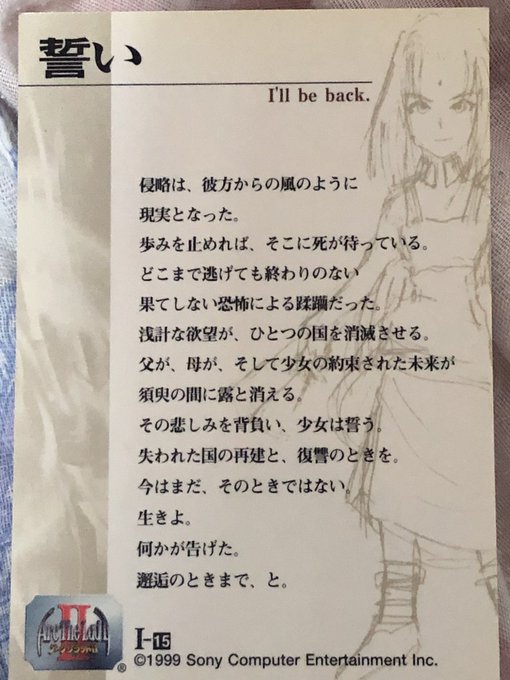 誓い
I'll be back.
侵略は、彼方からの風のように
現実となった。
歩みを止めれば、そこに死が待っている。
どこまで逃げても終わりのない
果てしない恐怖による蹂躙だった。
浅計な欲望が、ひとつの国を消滅させる。
父が、母が、そして少女の約束された未来が
須臾の間に露と消える。
その悲しみを背負い、少女は誓う。
失われた国の再建と、復讐のときを。
今はまだ、そのときではない。
生きよ。
何かが告げた。
邂逅のときまで、と。
Arc The Lad II
アークザラッドII
®
I-15
©1999 Sony Computer Entertainment Inc.